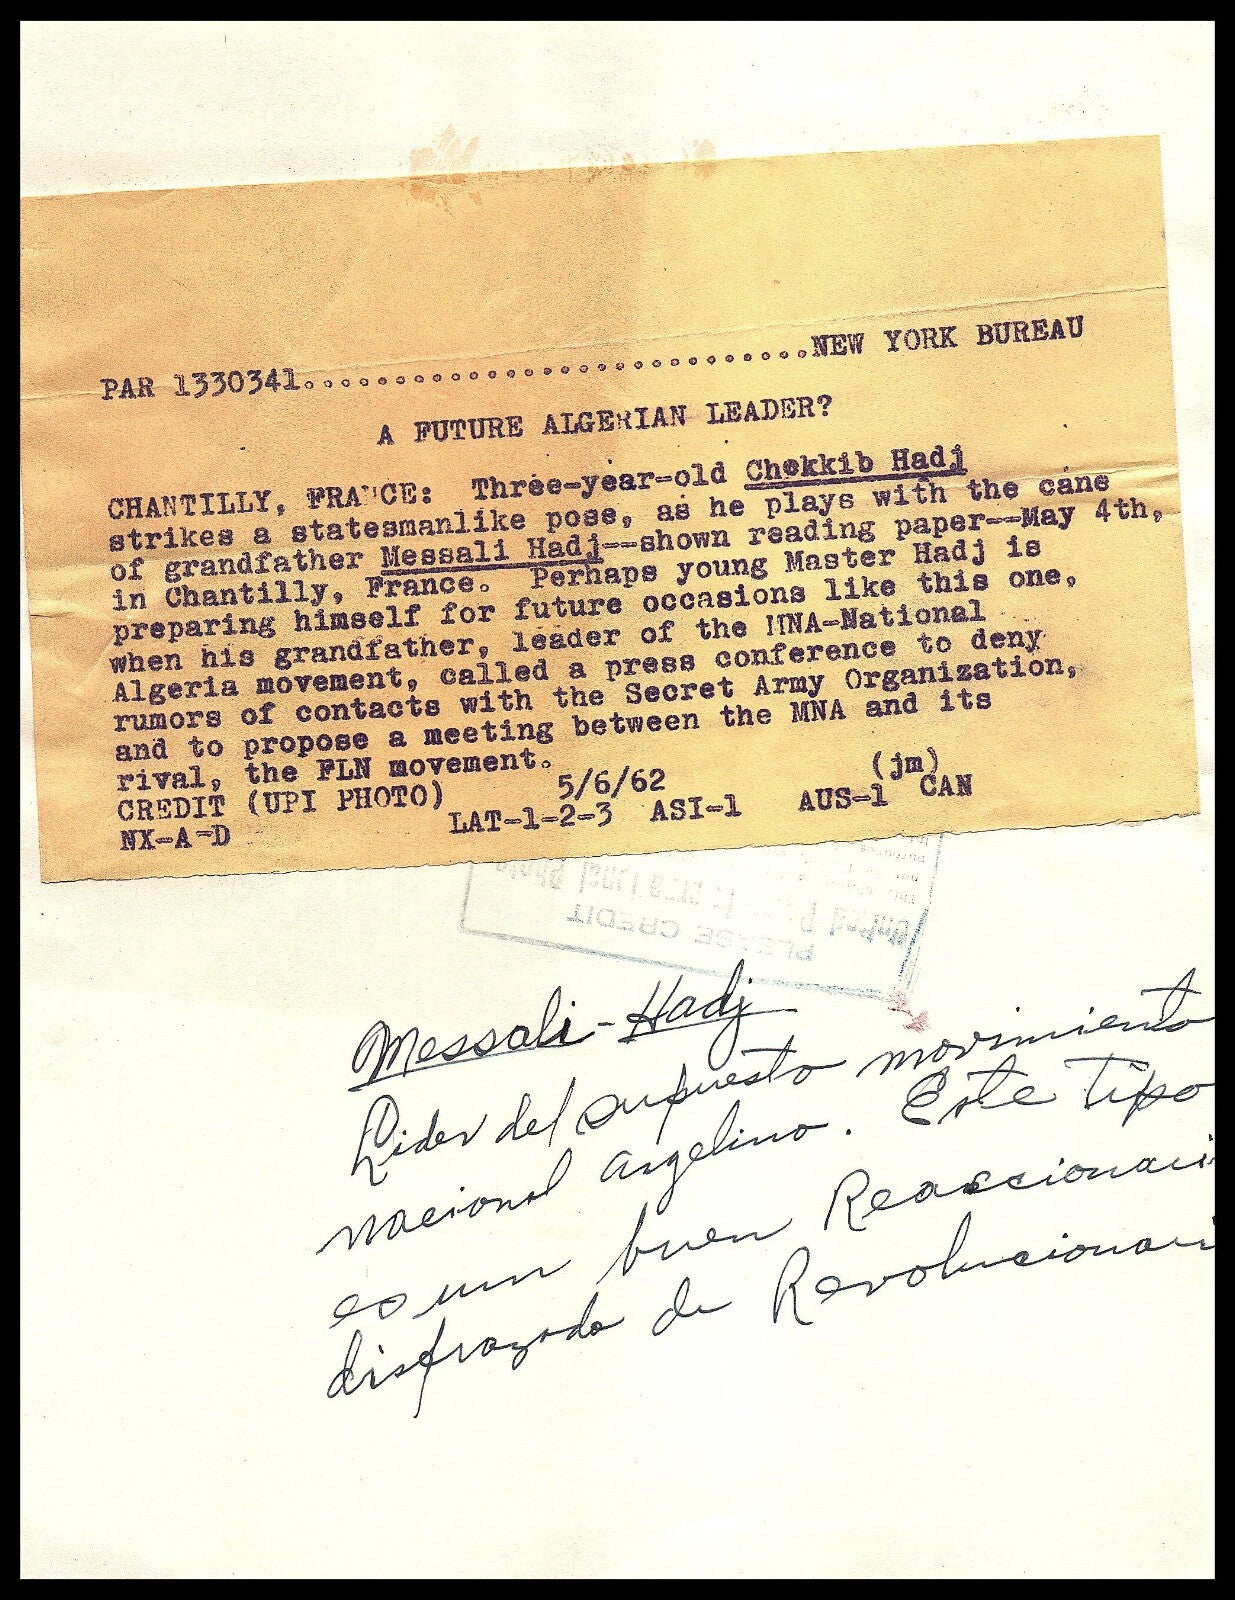 PAR 1330341..............................NEW YORK BUREAU
A FUTURE ALGERIAN LEADER?
CHANTILLY, FRANCE: Three-year-old Chekkib Hadj
strikes a statesmanlike pose, as he plays with the cane
of grandfather Messali Hadj--shown reading paper--May 4th,
in Chantilly, France. Perhaps young Master Hadj is
preparing himself for future occasions like this one,
when his grandfather, leader of the MNA-National
Algeria movement, called a press conference to deny
rumors of contacts with the Secret Army Organization,
and to propose a meeting between the MNA and its
rival, the FLN movement.
CREDIT (UPI PHOTO) 5/6/62 (jm)
NX-A-D LAT-1-2-3 ASI-1 AUS-1 CAN
PLEASE CREDIT
United
Messali-Hadj
Lider del supuesto movimiento
nacional argelino. Este tipo
es un buen Reaccionari
disfrazado de Revolucionari